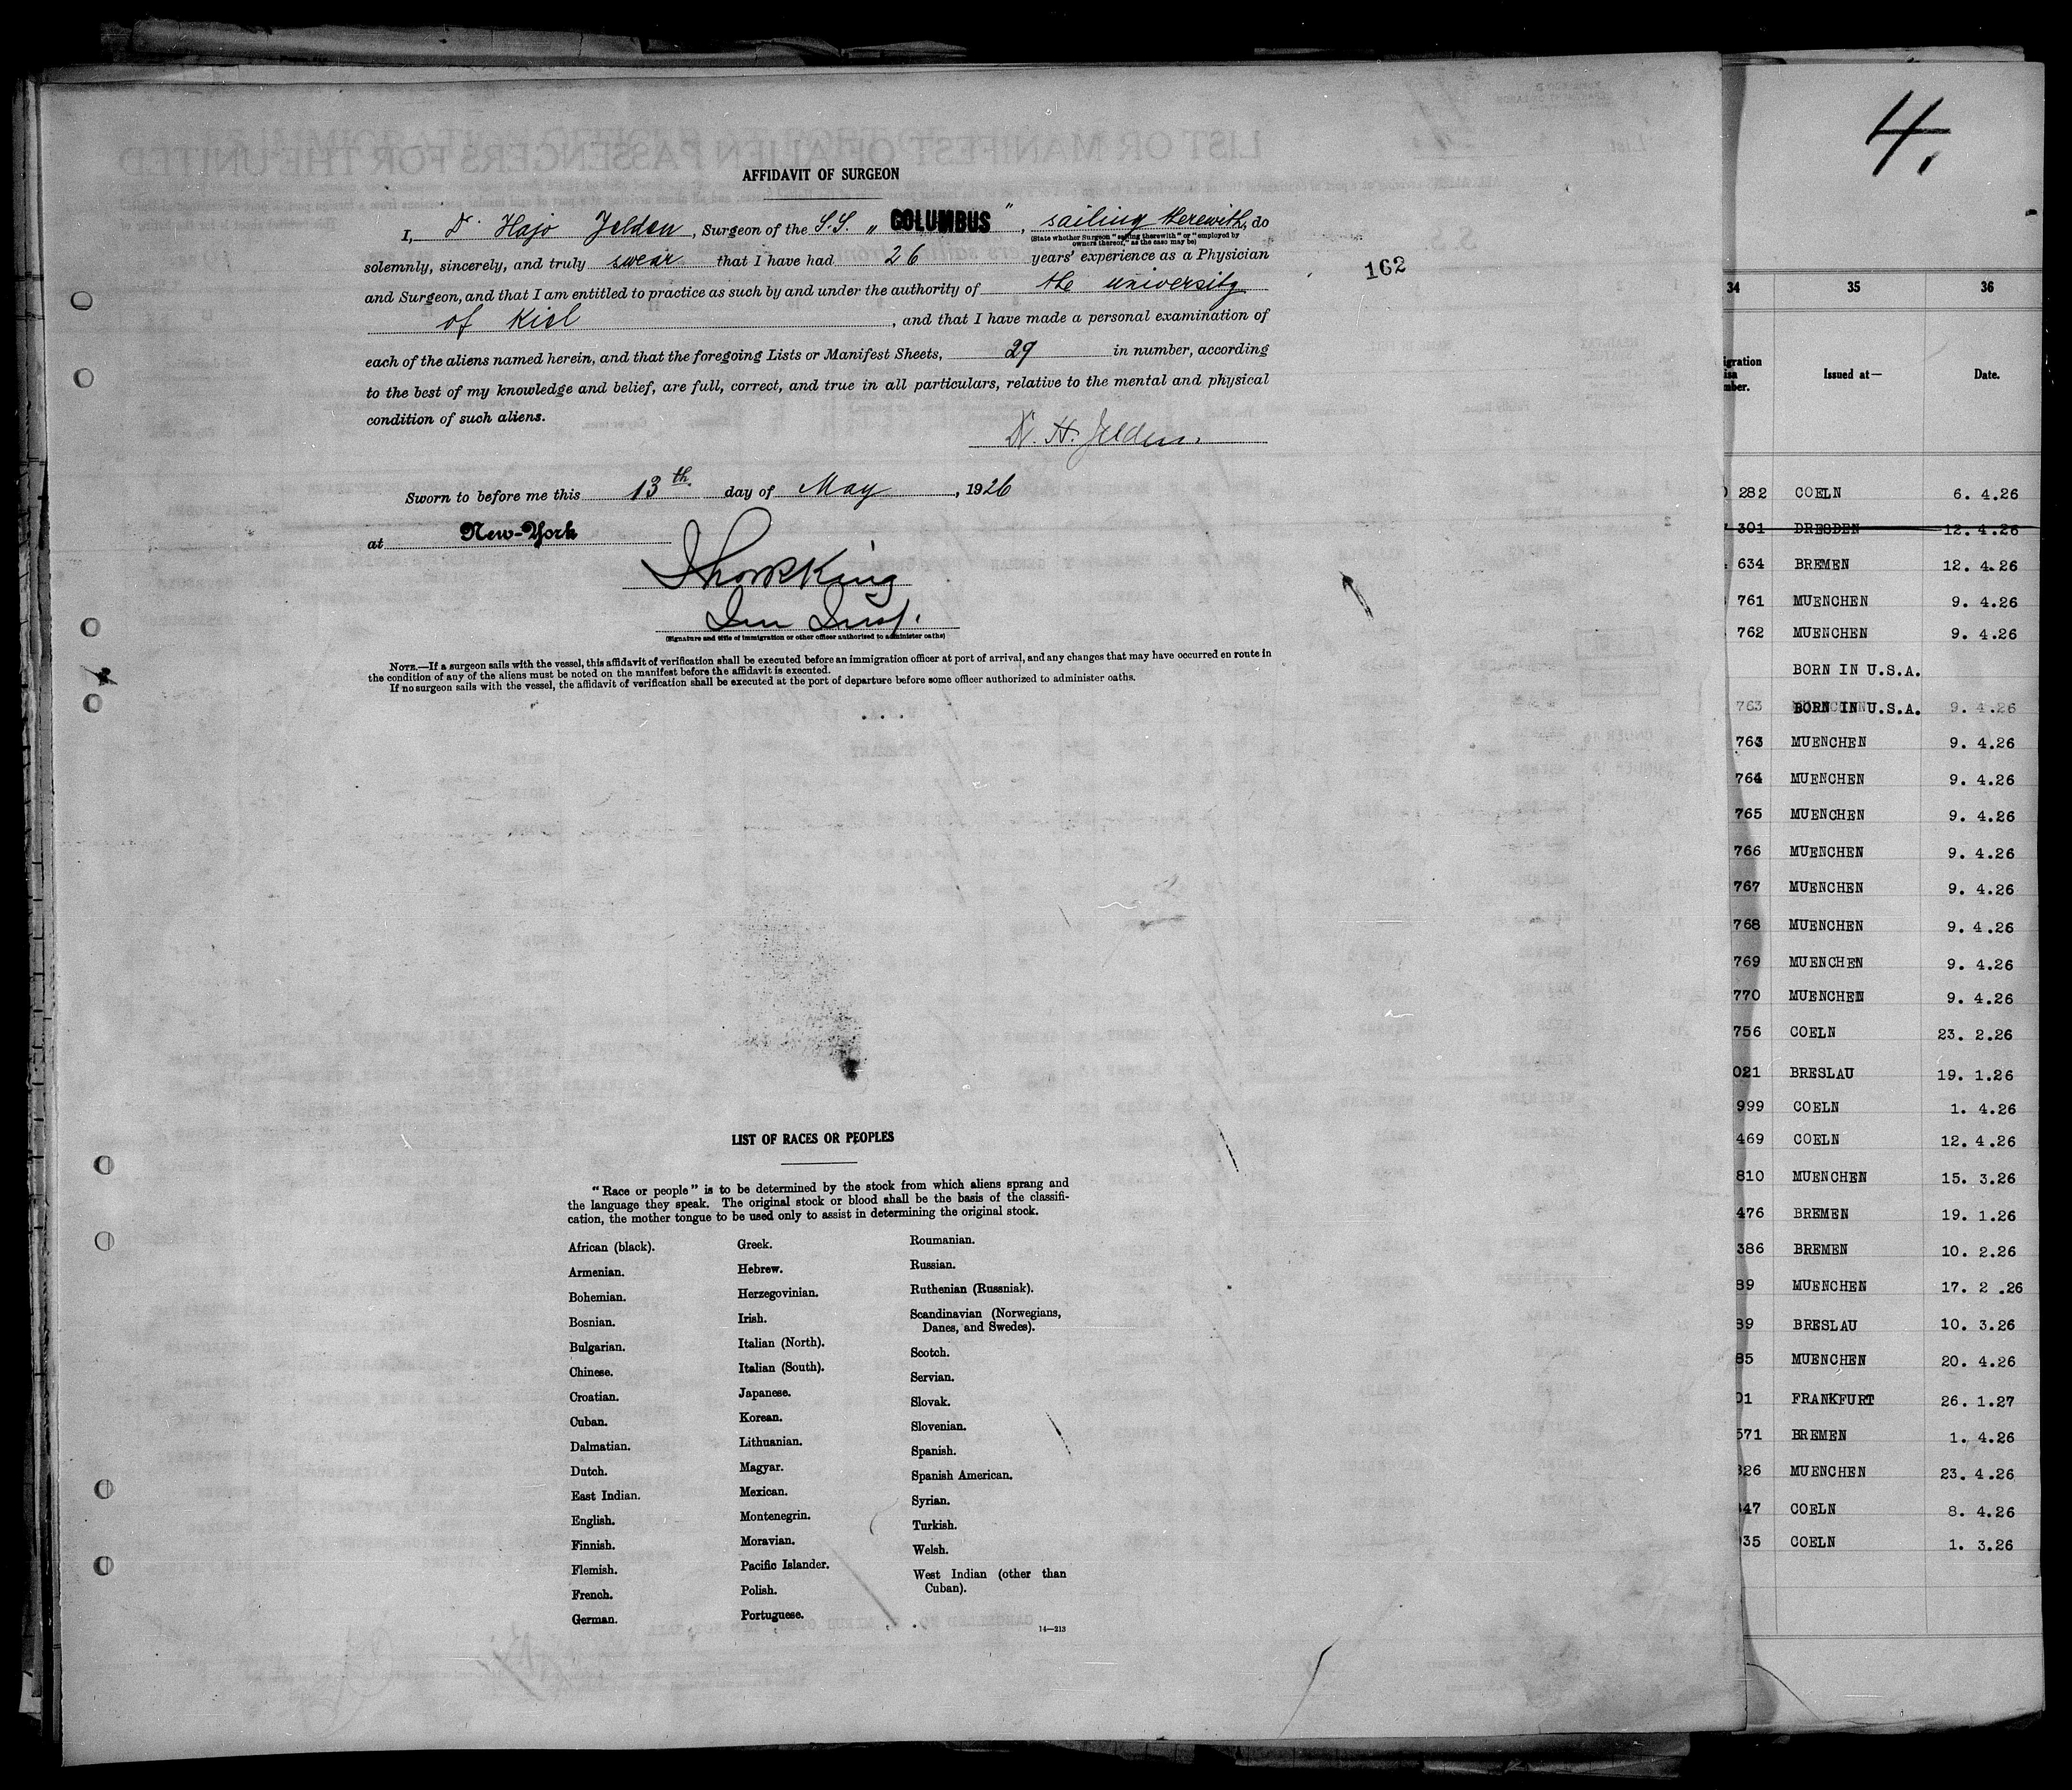 AFFIDAVIT OF SURGEON
I, Dr. Hajo Jelden, Surgeon of the S.S. „ COLUMBUS ", sailing therewith, do
(State whether Surgeon "sailing therewith" or "employed by
owners thereof," as the case may be)
solemnly, sincerely, and truly swear that I have had 26 years' experience as a Physician
and Surgeon, and that I am entitled to practice as such by and under the authority of the university
of Kiel, and that I have made a personal examination of
each of the aliens named herein, and that the foregoing Lists or Manifest Sheets, 29 in number, according
to the best of my knowledge and belief, are full, correct, and true in all particulars, relative to the mental and physical
condition of such aliens.
Dr. H. Jelden.
Sworn to before me this 13th day of May, 1926
at New-York
King
Imm Insp.
(Signature and title of immigration or other officer authorized to administer oaths)
NOTE.—If a surgeon sails with the vessel, this affidavit of verification shall be executed before an immigration officer at port of arrival, and any changes that may have occurred en route in
the condition of any of the aliens must be noted on the manifest before the affidavit is executed.
If no surgeon sails with the vessel, the affidavit of verification shall be executed at the port of departure before some officer authorized to administer oaths.
162
LIST OF RACES OR PEOPLES
"Race or people" is to be determined by the stock from which aliens sprang and
the language they speak. The original stock or blood shall be the basis of the classifi-
cation, the mother tongue to be used only to assist in determining the original stock.
African (black).
Armenian.
Bohemian.
Bosnian.
Bulgarian.
Chinese.
Croatian.
Cuban.
Dalmatian.
Dutch.
East Indian.
English.
Finnish.
Flemish.
French.
German.
Greek.
Hebrew.
Herzegovinian.
Irish.
Italian (North).
Italian (South).
Japanese.
Korean.
Lithuanian.
Magyar.
Mexican.
Montenegrin.
Moravian.
Pacific Islander.
Polish.
Portuguese.
Roumanian.
Russian.
Ruthenian (Russniak).
Scandinavian (Norwegians,
Danes, and Swedes).
Scotch.
Servian.
Slovak.
Slovenian.
Spanish.
Spanish American.
Syrian.
Turkish.
Welsh.
West Indian (other than
Cuban).
14—213
4.
34 35 36
igration
isa
mber.
Issued at— Date.
282 COELN 6. 4.26
301 DRESDEN 12. 4.26
634 BREMEN 12. 4.26
761 MUENCHEN 9. 4.26
762 MUENCHEN 9. 4.26
BORN IN U.S.A.
763 BORN IN U.S.A. 9. 4.26
763 MUENCHEN 9. 4.26
764 MUENCHEN 9. 4.26
765 MUENCHEN 9. 4.26
766 MUENCHEN 9. 4.26
767 MUENCHEN 9. 4.26
768 MUENCHEN 9. 4.26
769 MUENCHEN 9. 4.26
770 MUENCHEN 9. 4.26
756 COELN 23. 2.26
021 BRESLAU 19. 1.26
999 COELN 1. 4.26
469 COELN 12. 4.26
810 MUENCHEN 15. 3.26
476 BREMEN 19. 1.26
386 BREMEN 10. 2.26
89 MUENCHEN 17. 2 .26
39 BRESLAU 10. 3.26
85 MUENCHEN 20. 4.26
01 FRANKFURT 26. 1.27
571 BREMEN 1. 4.26
326 MUENCHEN 23. 4.26
47 COELN 8. 4.26
35 COELN 1. 3.26